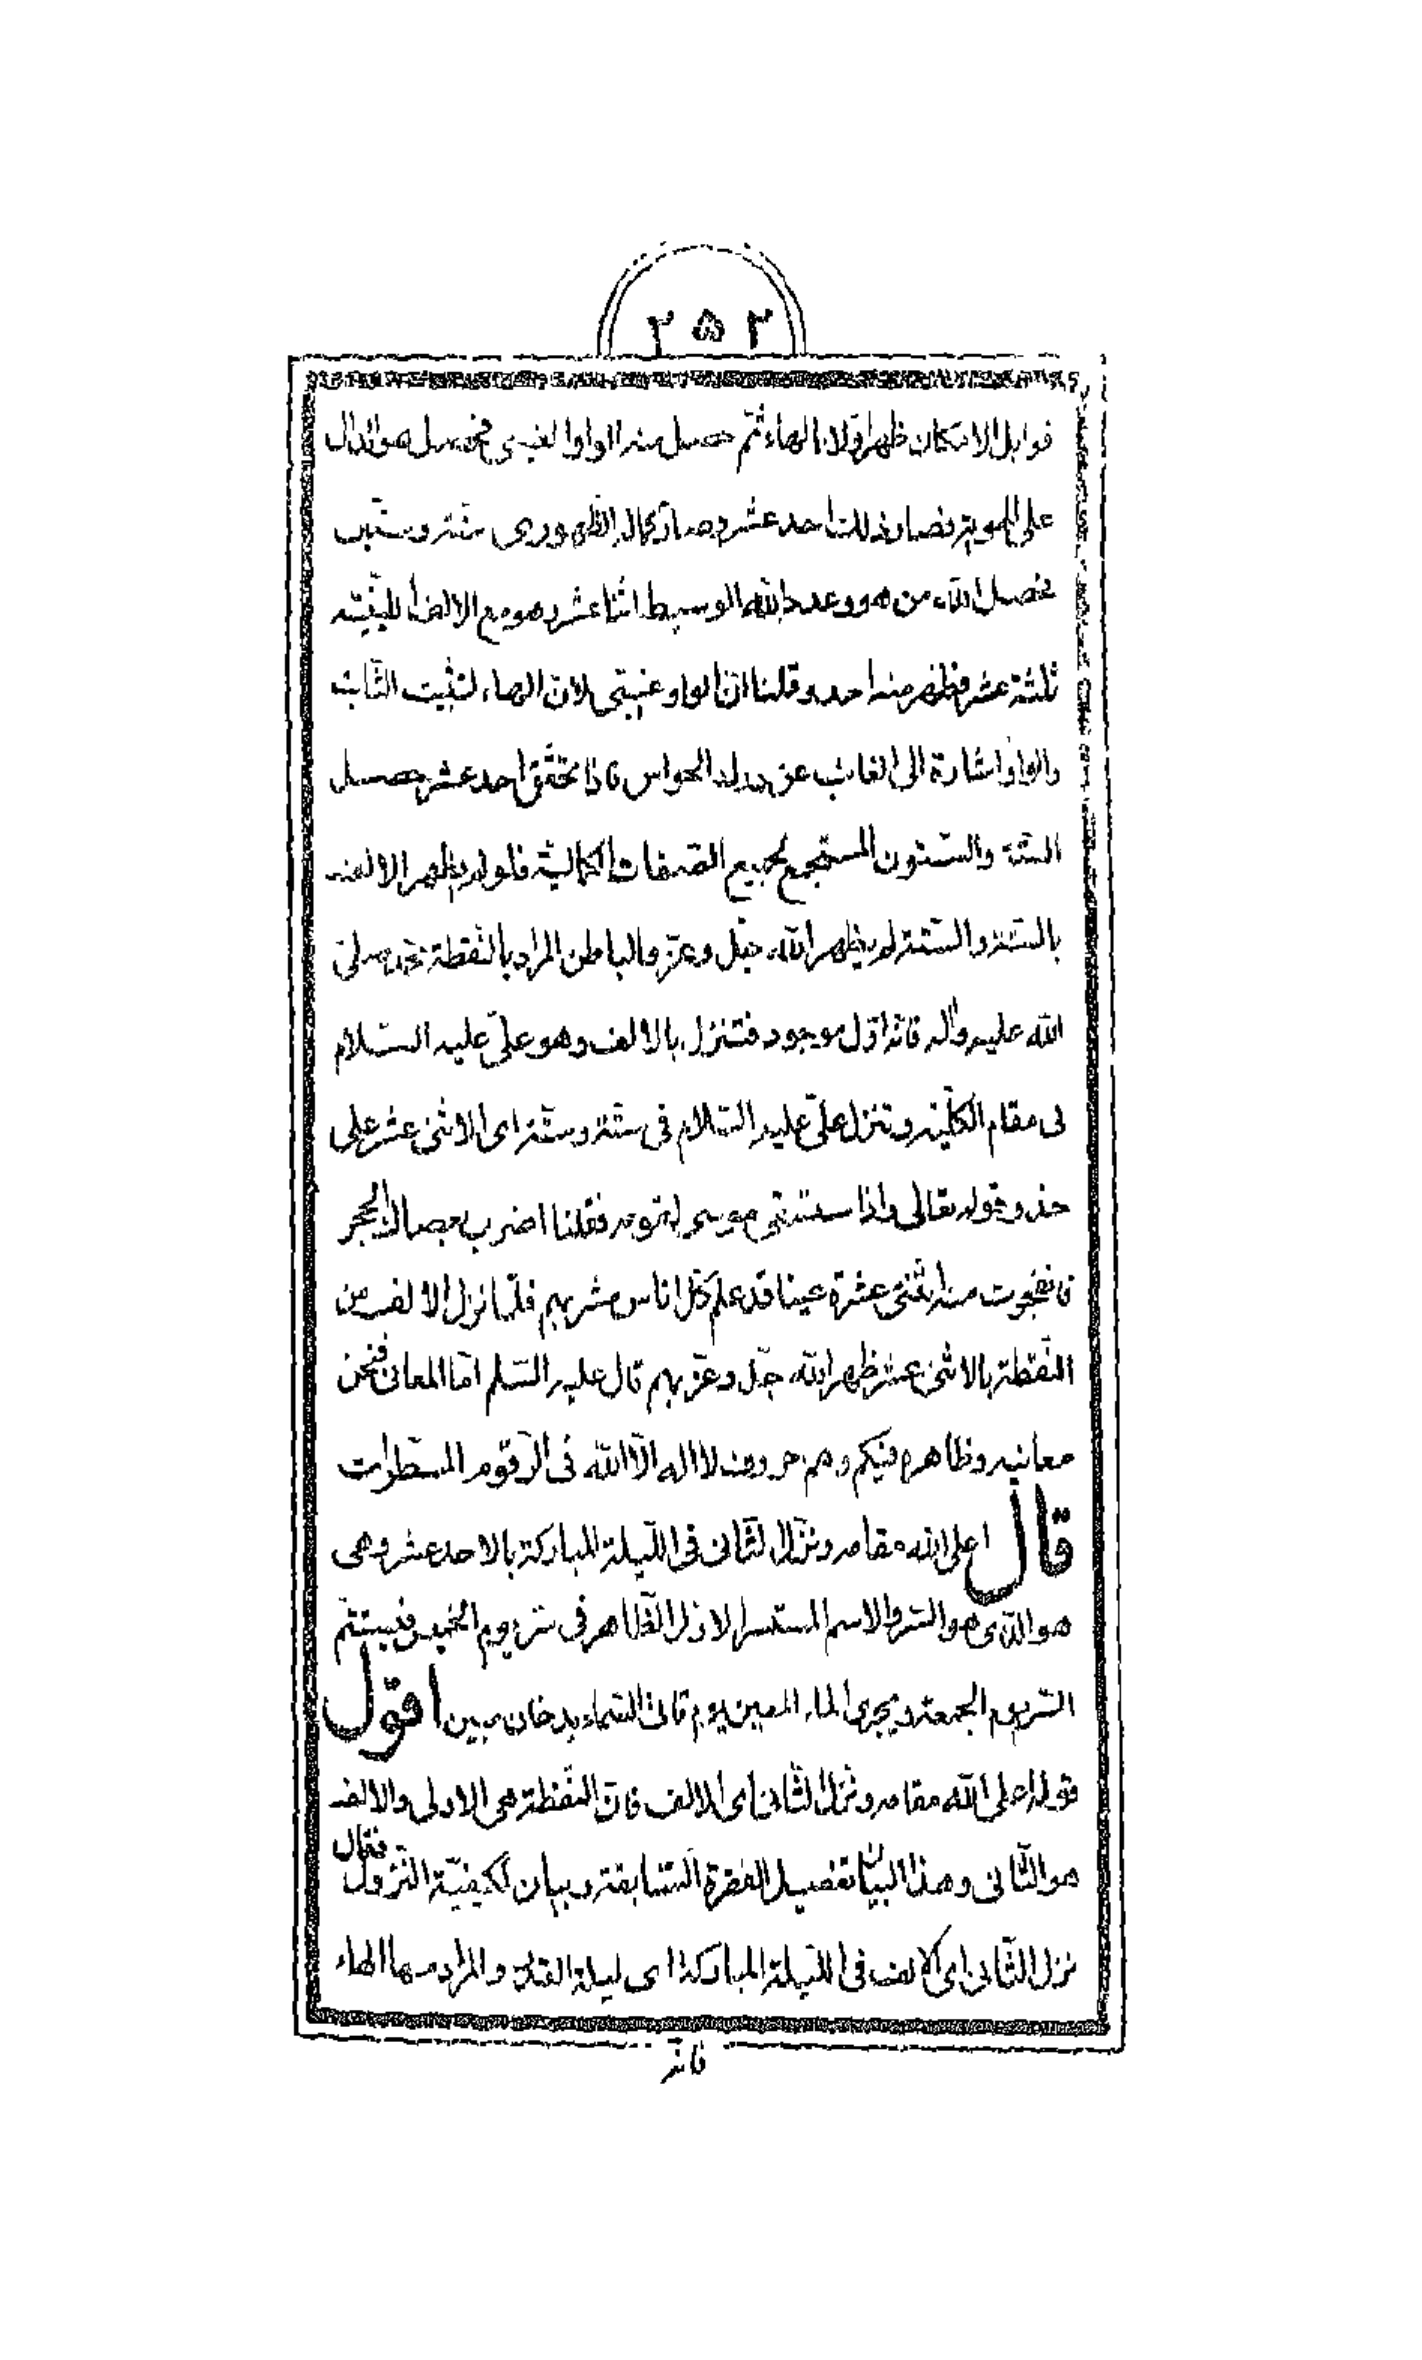 ۲۵۲
قوابل الامكان ظهر اوّلا بالهاء ثمّ حصل منه الواو الغيبى فحصل هو الدال
على الهوية فصار بذلك احد عشر وصار كمال الظهورى ستّة وستّين
فحصل الله من هو وعدد الله الوسيط اثنا عشر وهو مع الالف اللينيّة
ثلثة عشر فظهر منه احد وقلنا انّ الواو غيبتى لانّ الهاء لتثبيت الثّابت
والواو اشارة الى الغائب عن درك الحواس فاذا تحقّق احد عشر حصل
الستّة والستّون المستجمع لجميع الصّفات الكماليّة فلو لم يظهر الالف
بالستّة والستّة لم يظهر الله جلّ وعزّ والباطن المراد بالنّقطة محمّد صلّى
الله عليه وآله فانّه اوّل موجود فتنزل بالالف وهو علىّ عليه السّلام
فى مقام الكلّيّة وتنزل علىّ عليه السّلام فى ستّة وستّة اى الاثنى عشر على
حذو قوله تعالى واذا ستسقى موسى لقومه فقلنا اضرب بعصاك الحجر
فانفجرت منه اثنتى عشرة عينا قد علم كلّ اناس مشربهم فلمّا نزل الالف من
النّقطة بالاثنى عشر ظهر الله جلّ وعزّ بهم قال عليه السّلم امّا المعانى فنحن
معانيه وظاهره فيكم وهم حروف لا اله الّا الله فى الرّقوم المسطرات
قال اعلى الله مقامه ونزل الثّانى فى اللّيلة المباركة بالاحد عشر وهى
هو الّذى هو السّر والاسم المستسر الاوّل الظّاهر فى سرّ يوم الخميس فيستتمّ
السّر يوم الجمعة ويجرى الماء المعين يوم تاتى السّماء بدخان مبين اقول
قوله اعلى الله مقامه ونزل الثّانى اى الالف فانّ النّقطة هى الاولى والالف
هو الثّانى وهذا البيان تفصيل الفقرة السّابقة وبيان لكيفيّة النّزول فقال
نزل الثّانى اى الالف فى اللّيلة المباركة اى ليلة القدر والمراد بها الهاء
فانّه